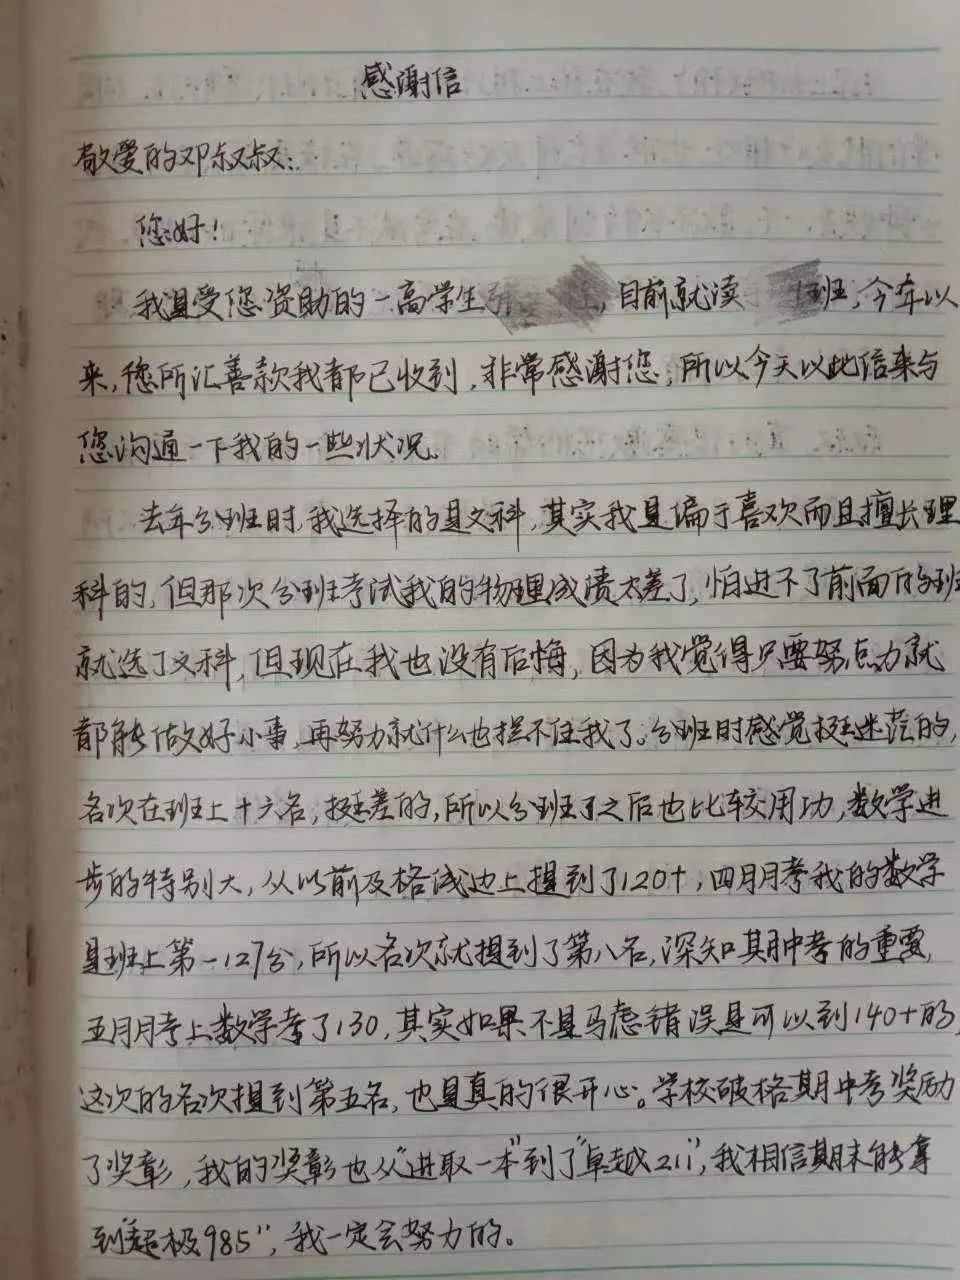 感谢信
敬爱的邓叔叔:
您好!
我是受您资助的一高学生，目前就读班,今年以
来,您所汇善款我都已收到,非常感谢您,所以今天以此信来与
您沟通一下我的一些状况。
去年分班时,我选择的是文科,其实我是偏于喜欢而且擅长理
科的,但那次分班考试我的物理成绩太差了,怕进不了前面的班
就选了文科,但现在我也没有后悔,因为我觉得只要努点力就
都能做好小事,再努力就什么也拦不住我了。分班时感觉挺迷茫的,
名次在班上十六名,挺差的,所以分班了之后也比较用功,数学进
步的特别大,从以前及格线边上提到了120+,四月月考我的数学
是班上第一127分,所以名次就提到了第八名,深知期中考的重要,
五月月考上数学考了130,其实如果不是马虑错误是可以到140+的,
这次的名次提到第五名,也是真的很开心。学校破格期中考奖励
了奖彰,我的奖彰也从"进取一本"到了"卓越211",我相信期末能拿
到"超极985",我一定会努力的。